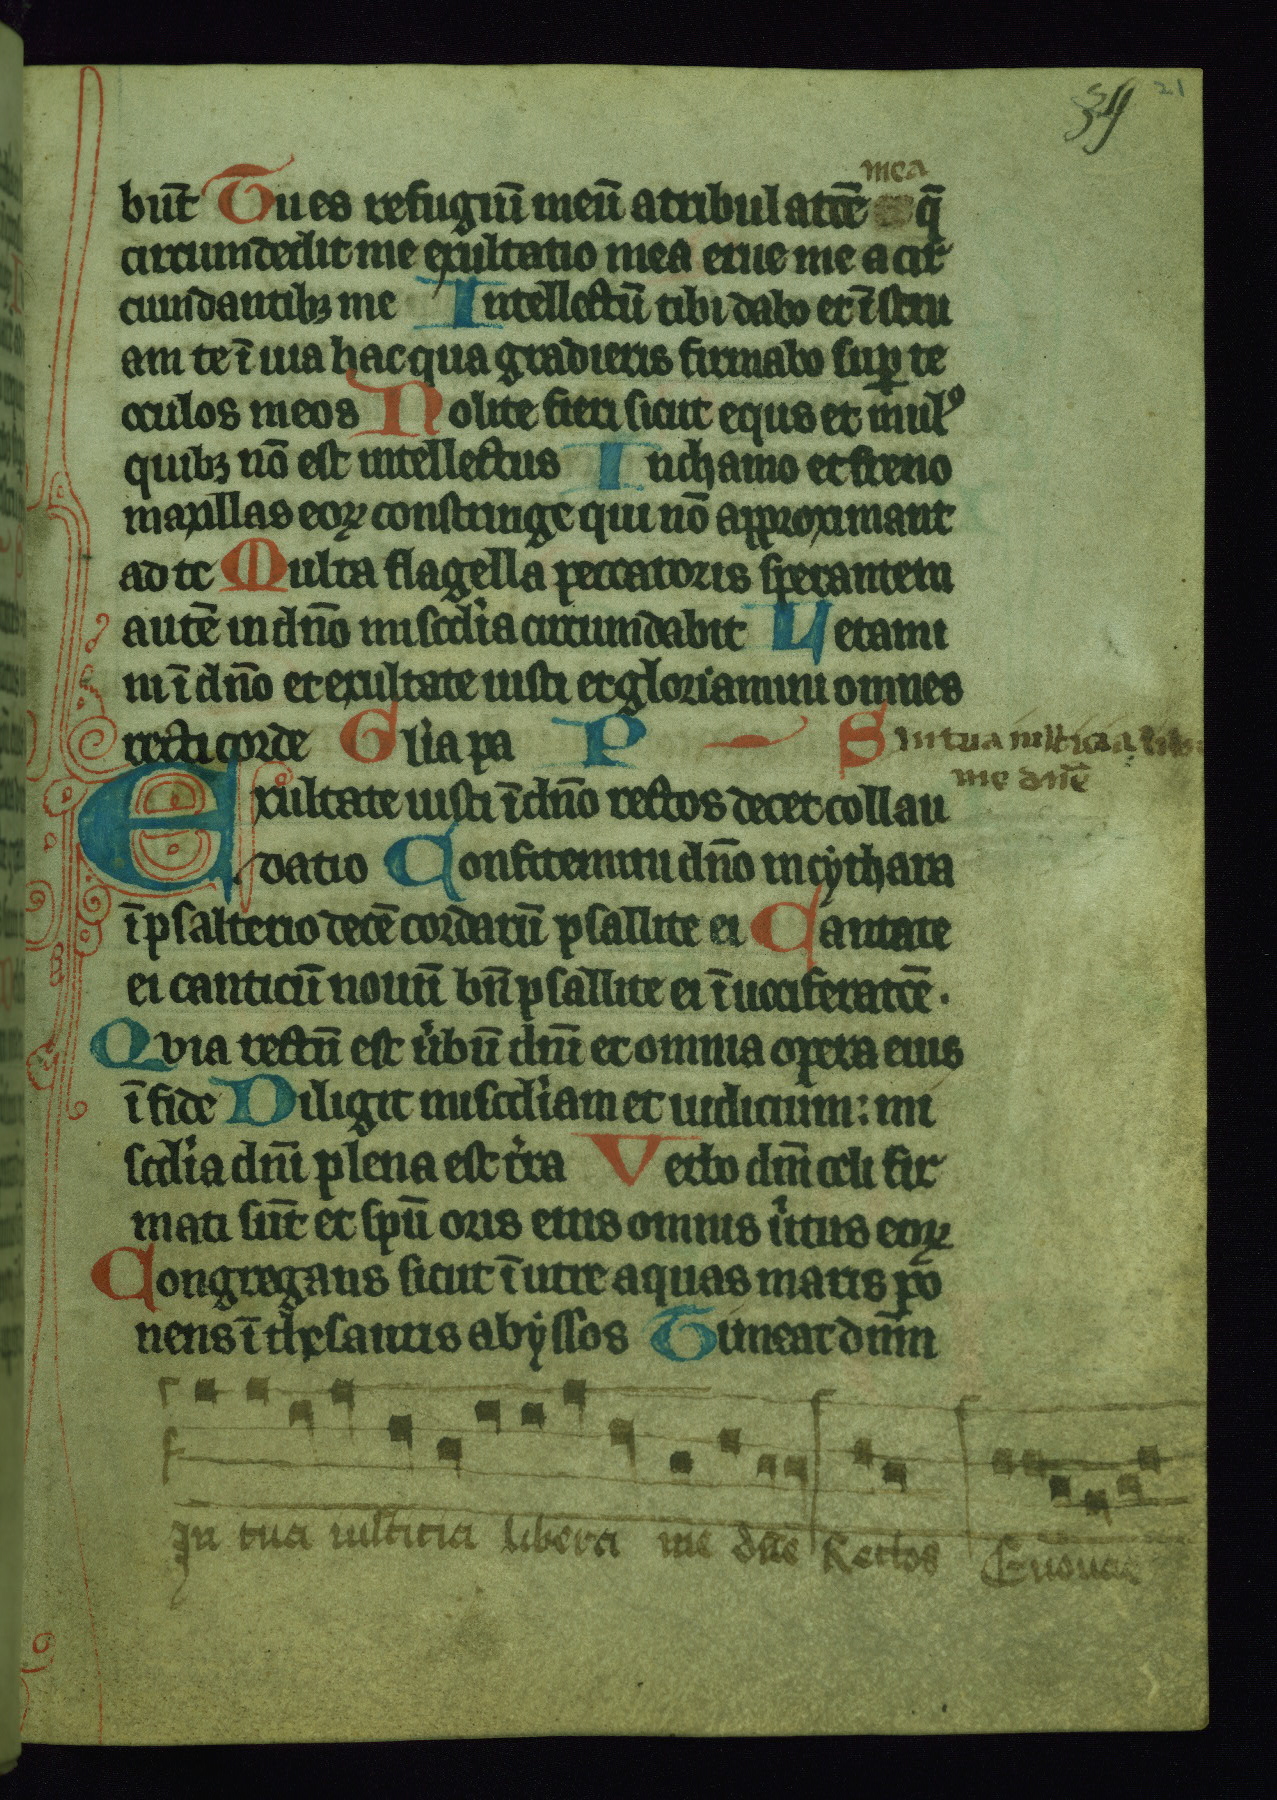 39 21
mea
būt Tu es refugiū meū a tribulatōe q̄
circumdedit me exultatio mea erue me a cir
cumdantibꝫ me Intellectū tibi dabo et īstru
am te ī uia hac qua gradieris firmabo suꝑ te
oculos meos Nolite fieri sicut equs et mulꝰ
quibꝫ nō est intellectus In chamo et freno
maxillas eoꝝ constringe qui nō approximant
ad te Multa flagella peccatoris sperantem
autē in dn̄o miscdia circumdabit Letami
ni ī dn̄o et exultate iusti et gloriamini omnes
recti corde Glia pa P S In tua iusticia
me dn̄e
Exultate iusti ī dn̄o rectos decet collau
datio Confitemini dn̄o in cythara
ī psalterio decē cordarū psallite ei Cantate
ei canticū nouū bn̄ psallite ei ī uociferatōe.
Quia rectū est ūbū dn̄i et omnia opera eius
ī fide Diligit miscdiam et iudicium: mi
scdia dn̄i plena est tra Verbo dn̄i celi fir
mati sūt et spū oris eius omnis uitus eoꝝ
Congregans sicut ī utre aquas maris po
nens ī thesauris abyssos Timeat dn̄m
In tua iusticia libera me dn̄e Rectos Euouae